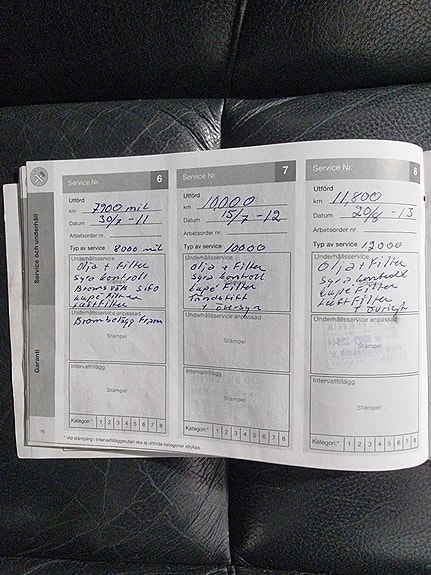 Service och underhåll
Garanti
Service Nr. 6
Utförd
km 7900 mil
Datum 30/7 -11
Arbetsorder nr.
Typ av service 8000 mil
Underhållsservice
Olja + Filter
Syra kontroll
Bromsvätska
Kupé Filter
Luftfilter
Underhållsservice anpassad
Brombelägg Fram
Stämpel
Intervalltillägg
Stämpel
Kategori * 1 2 3 4 5 6 7 8
* Vid stämpling i Intervalltilläggsrutan ska ej utförda kategorier strykas.
Service Nr. 7
Utförd
km 10,000
Datum 15/7 -12
Arbetsorder nr.
Typ av service 10000
Underhållsservice
Olja + Filter
Syra kontroll
Kupé Filter
Tändstift
+ översyn
Underhållsservice anpassad
Stämpel
Intervalltillägg
Stämpel
Kategori * 1 2 3 4 5 6 7 8
Service Nr. 8
Utförd
km 11,800
Datum 20/8 -13
Arbetsorder nr.
Typ av service 12000
Underhållsservice
Olja + Filter
Syra kontroll
Kupé Filter
Luft Filter
Underhållsservice anpassad
Stämpel
Intervalltillägg
Stämpel
Kategori * 1 2 3 4 5 6 7 8